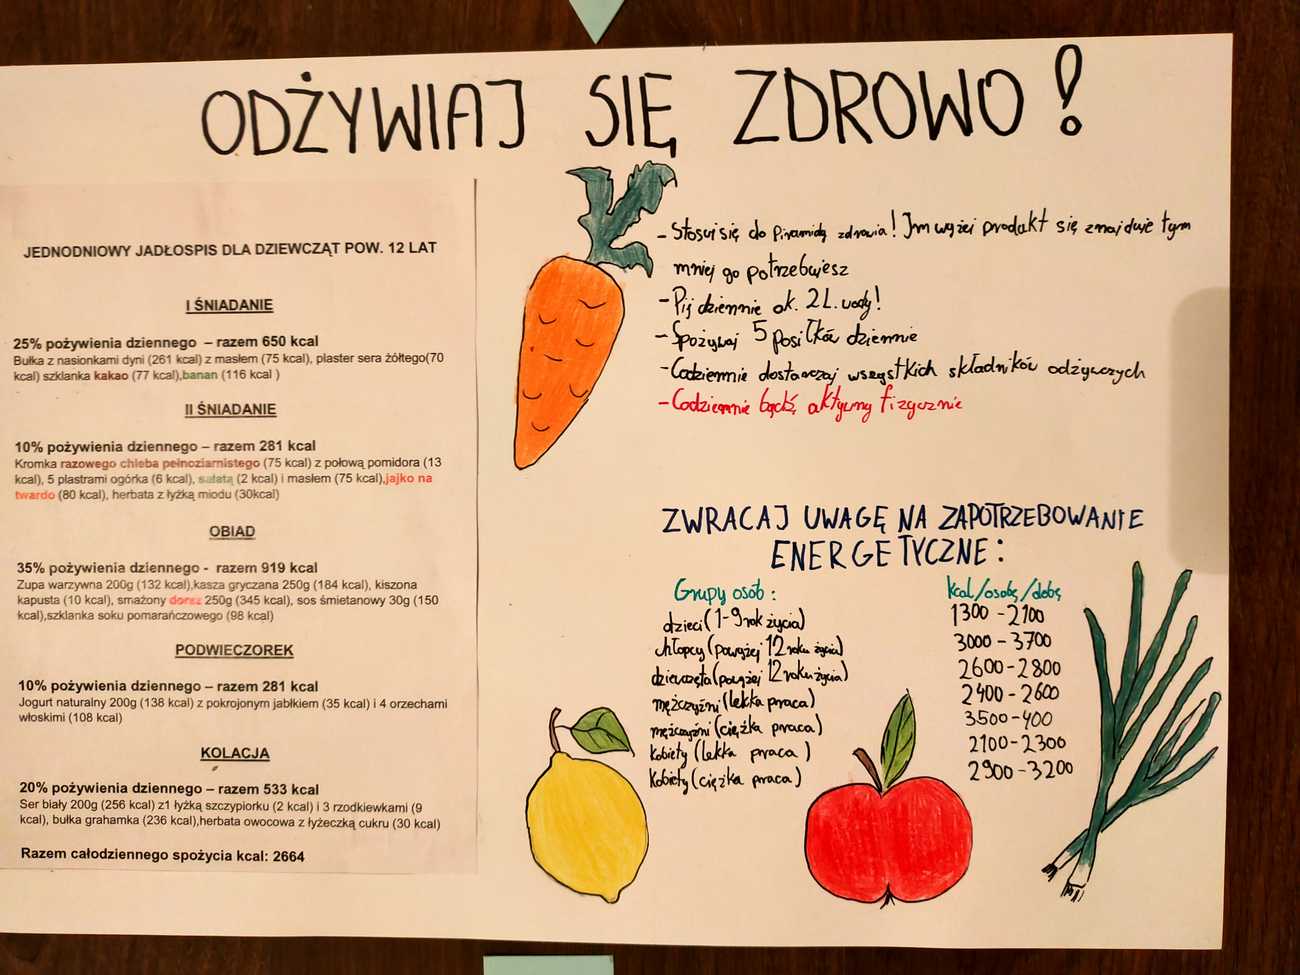 ODŻYWIAJ SIĘ ZDROWO!
JEDNODNIOWY JADŁOSPIS DLA DZIEWCZĄT POW. 12 LAT
I ŚNIADANIE
25% pożywienia dziennego – razem 650 kcal
Bułka z nasionkami dyni (261 kcal) z masłem (75 kcal), plaster sera żółtego(70
kcal) szklanka kakao (77 kcal),banan (116 kcal )
II ŚNIADANIE
10% pożywienia dziennego – razem 281 kcal
Kromka razowego chleba pełnoziarnistego (75 kcal) z połową pomidora (13
kcal), 5 plastrami ogórka (6 kcal), sałatą (2 kcal) i masłem (75 kcal),jajko na
twardo (80 kcal), herbata z łyżką miodu (30kcal)
OBIAD
35% pożywienia dziennego - razem 919 kcal
Zupa warzywna 200g (132 kcal),kasza gryczana 250g (184 kcal), kiszona
kapusta (10 kcal), smażony dorsz 250g (345 kcal), sos śmietanowy 30g (150
kcal),szklanka soku pomarańczowego (98 kcal)
PODWIECZOREK
10% pożywienia dziennego – razem 281 kcal
Jogurt naturalny 200g (138 kcal) z pokrojonym jabłkiem (35 kcal) i 4 orzechami
włoskimi (108 kcal)
KOLACJA
20% pożywienia dziennego – razem 533 kcal
Ser biały 200g (256 kcal) z1 łyżką szczypiorku (2 kcal) i 3 rzodkiewkami (9
kcal), bułka grahamka (236 kcal),herbata owocowa z łyżeczką cukru (30 kcal)
Razem całodziennego spożycia kcal: 2664
- Stosuj się do Piramidy zdrowia! Im wyżej produkt się znajduje tym
mniej go potrzebujesz
- Pij dziennie ok. 2L. wody!
- Spożywaj 5 posiłków dziennie
- Codziennie dostarczaj wszystkich składników odżywczych
- Codziennie bądź aktywny fizycznie
ZWRACAJ UWAGĘ NA ZAPOTRZEBOWANIE
ENERGETYCZNE:
Grupy osób: kcal/osobę/dobę
dzieci (1-9 rok życia) 1300 - 2100
chłopcy (powyżej 12 roku życia) 3000 - 3700
dziewczęta (powyżej 12 roku życia) 2600 - 2800
mężczyźni (lekka praca) 2400 - 2600
mężczyźni (ciężka praca) 3500 - 400
Kobiety (lekka praca) 2100 - 2300
Kobiety (ciężka praca) 2900 - 3200